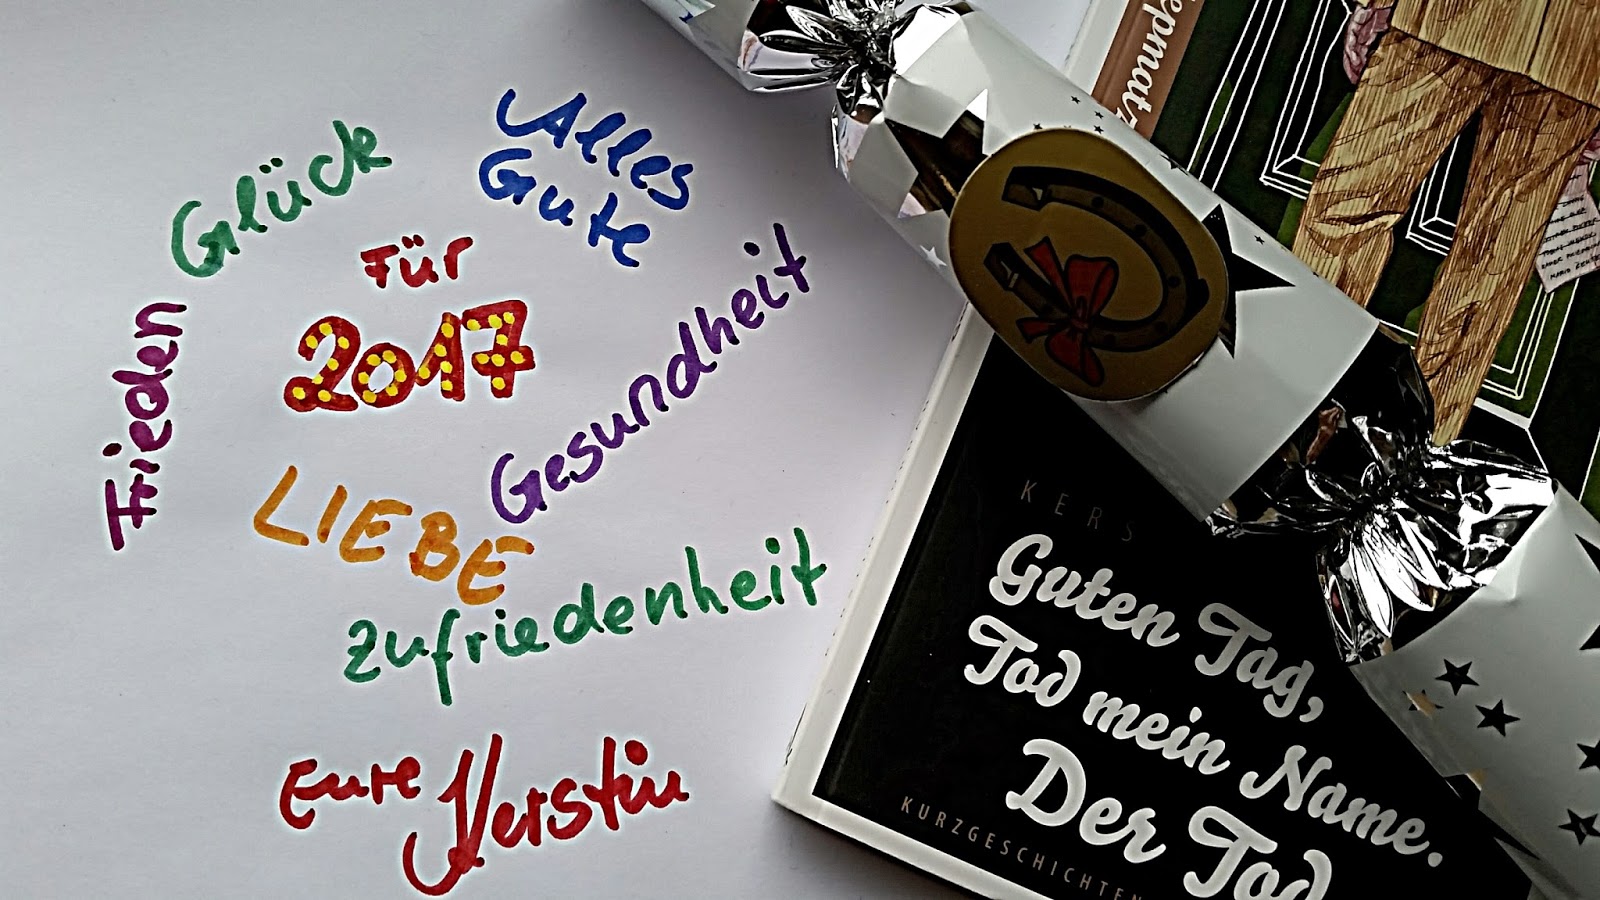 Alles
Gute
Glück
Für
2017
Frieden
Gesundheit
LIEBE
Zufriedenheit
Eure Kerstin
KERS
Guten Tag,
Tod mein Name.
Der Tod
KURZGESCHICHTEN
epmatz